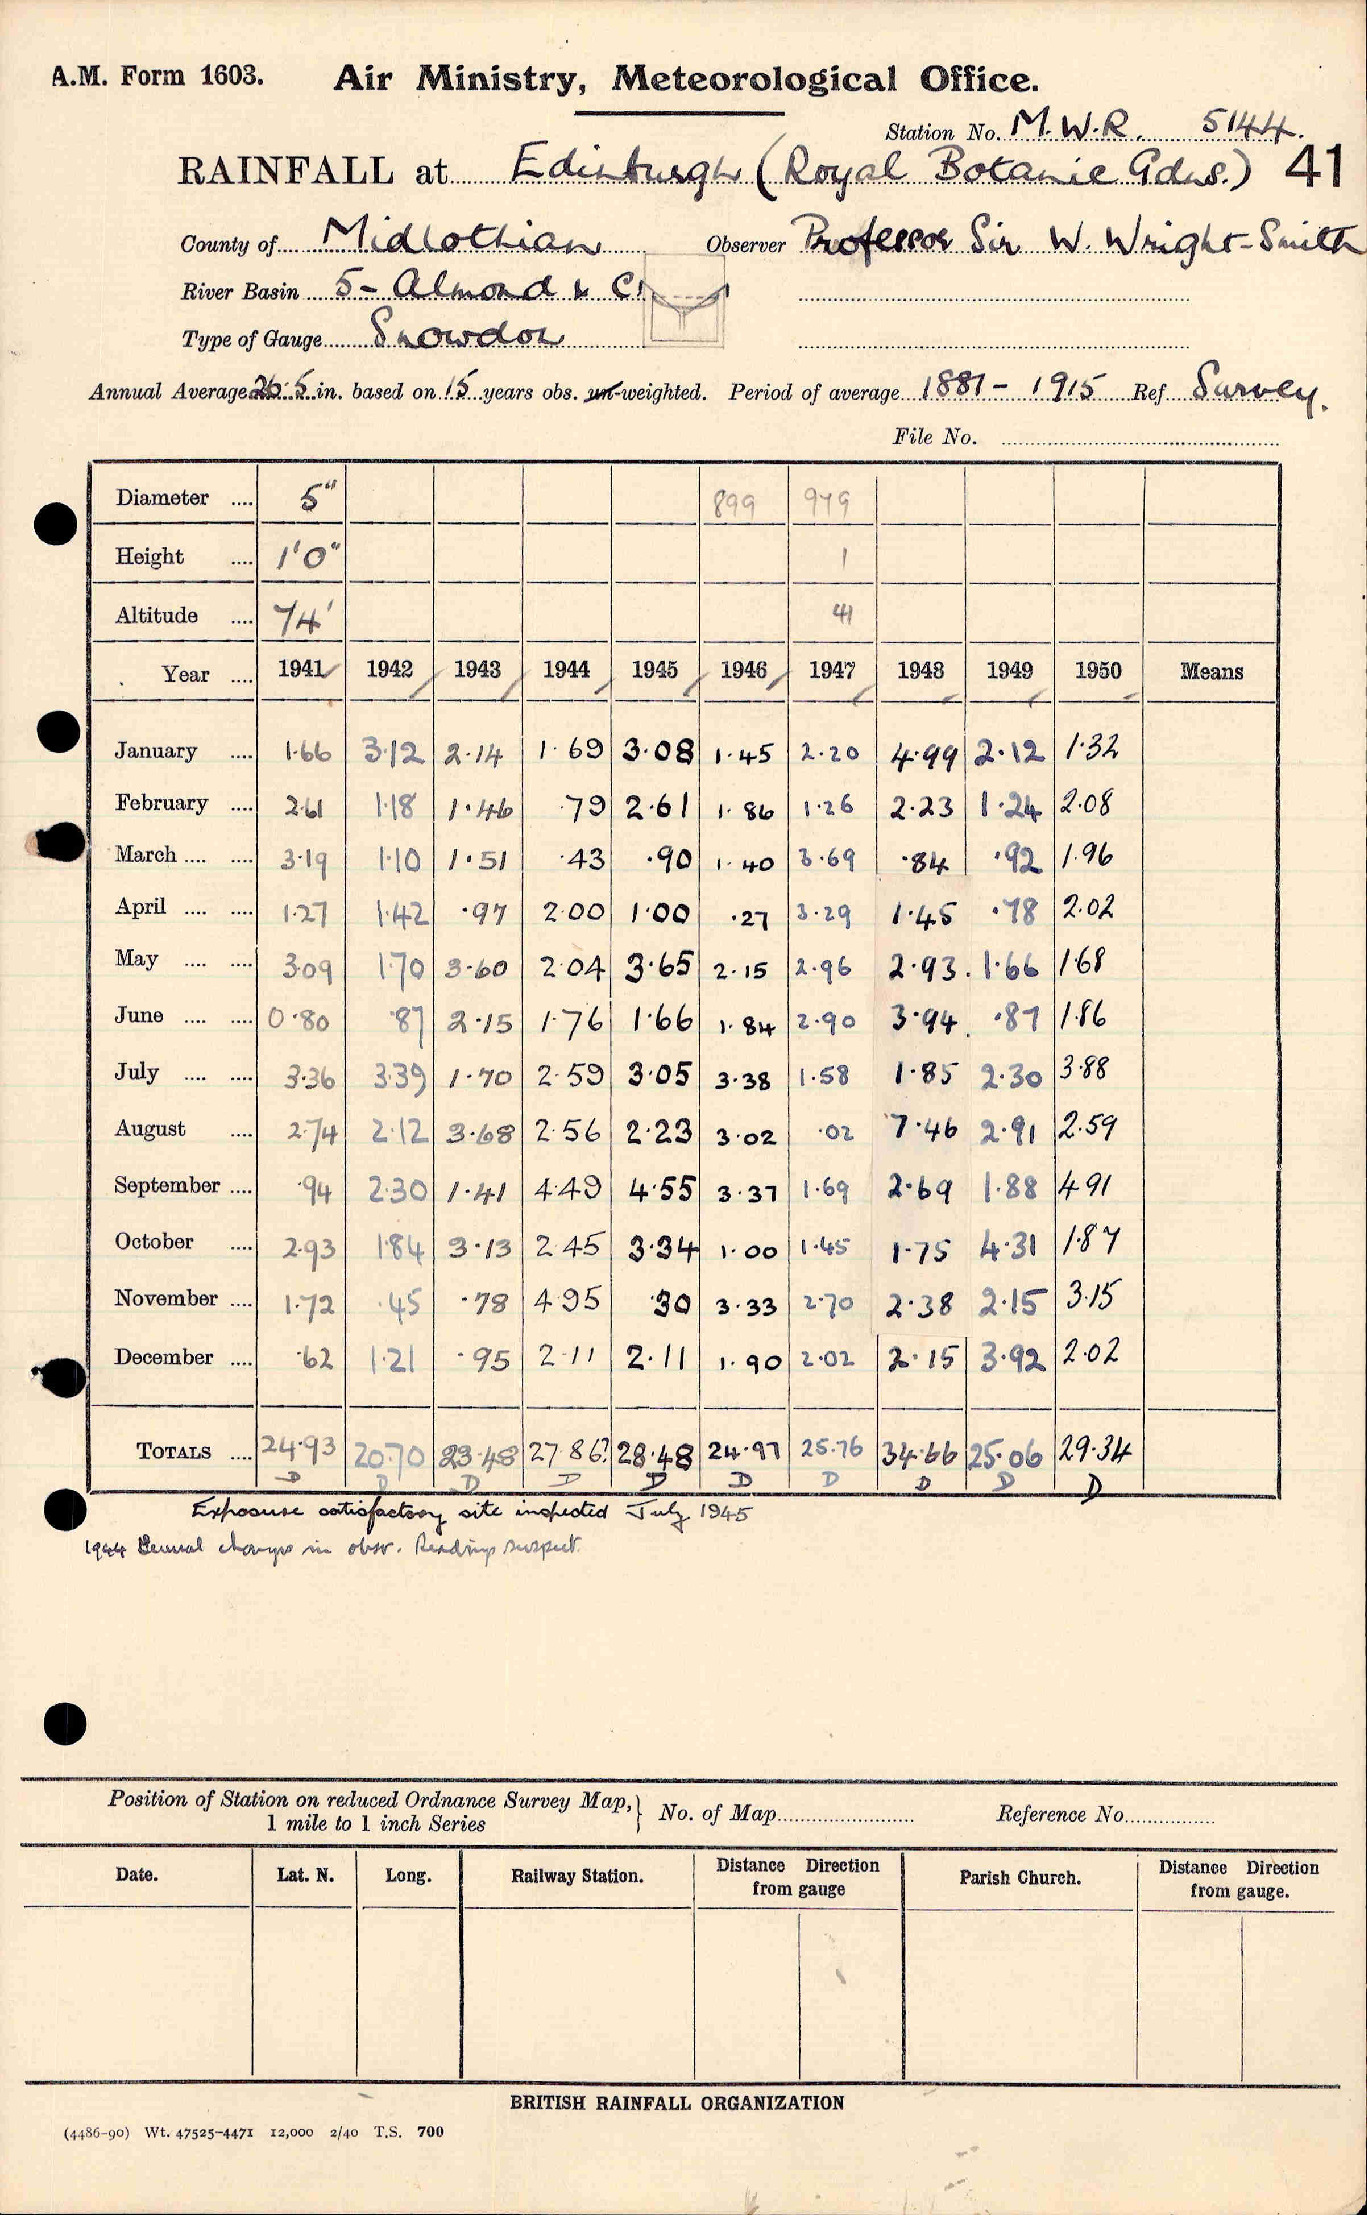 A.M. Form 1603. Air Ministry, Meteorological Office.
Station No. M.W.R. 5144.
RAINFALL at Edinburgh (Royal Botanic Gdns.) 41
County of Midlothian Observer Professor Sir W. Wright-Smith
River Basin 5- Almond & C
Type of Gauge Snowdon
Annual Average 26.5 in. based on 15 years obs. un-weighted. Period of average 1881 - 1915 Ref Survey.
File No.
Diameter .... 5" 899 979
Height .... 1'0" 1
Altitude .... 74' 41
Year .... 1941 1942 1943 1944 1945 1946 1947 1948 1949 1950 Means
January .... 1.66 3.12 2.14 1.69 3.08 1.45 2.20 4.99 2.12 1.32
February .... 2.61 1.18 1.46 .79 2.61 1.86 1.26 2.23 1.24 2.08
March .... .... 3.19 1.10 1.51 .43 .90 1.40 3.69 .84 .92 1.96
April .... .... 1.27 1.42 .97 2.00 1.00 .27 3.29 1.45 .78 2.02
May .... .... 3.09 1.70 3.60 2.04 3.65 2.15 2.96 2.93. 1.66 1.68
June .... .... 0.80 .87 2.15 1.76 1.66 1.84 2.90 3.94. .87 1.86
July .... .... 3.36 3.39 1.70 2.59 3.05 3.38 1.58 1.85 2.30 3.88
August .... 2.74 2.12 3.68 2.56 2.23 3.02 .02 7.46 2.91 2.59
September .... .94 2.30 1.41 4.49 4.55 3.37 1.69 2.69 1.88 4.91
October .... 2.93 1.84 3.13 2.45 3.34 1.00 1.45 1.75 4.31 1.87
November .... 1.72 .45 .78 4.95 .30 3.33 2.70 2.38 2.15 3.15
December .... .62 1.21 .95 2.11 2.11 1.90 2.02 2.15 3.92 2.02
TOTALS .... 24.93 20.70 23.48 27.86? 28.48 24.97 25.76 34.66 25.06 29.34
D D D D D D D D D D
Exposure satisfactory site inspected July 1945
1944 Several changes in obsr. Readings suspect.
Position of Station on reduced Ordnance Survey Map, 1 mile to 1 inch Series } No. of Map Reference No.
Date. Lat. N. Long. Railway Station. Distance from gauge Direction Parish Church. Distance Direction from gauge.
BRITISH RAINFALL ORGANIZATION
(4486-90) Wt. 47525-4471 12,000 2/40 T.S. 700